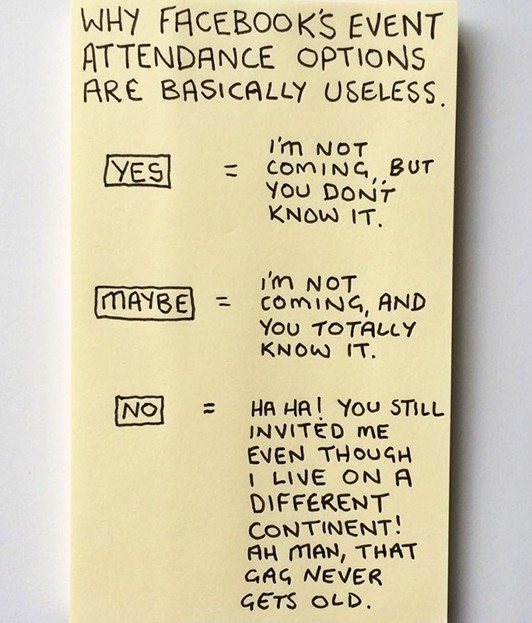 WHY FACEBOOK'S EVENT
ATTENDANCE OPTIONS
ARE BASICALLY USELESS.
YES = I'M NOT
COMING, BUT
YOU DON'T
KNOW IT.
MAYBE = I'M NOT
COMING, AND
YOU TOTALLY
KNOW IT.
NO = HA HA! YOU STILL
INVITED ME
EVEN THOUGH
I LIVE ON A
DIFFERENT
CONTINENT!
AH MAN, THAT
GAG NEVER
GETS OLD.